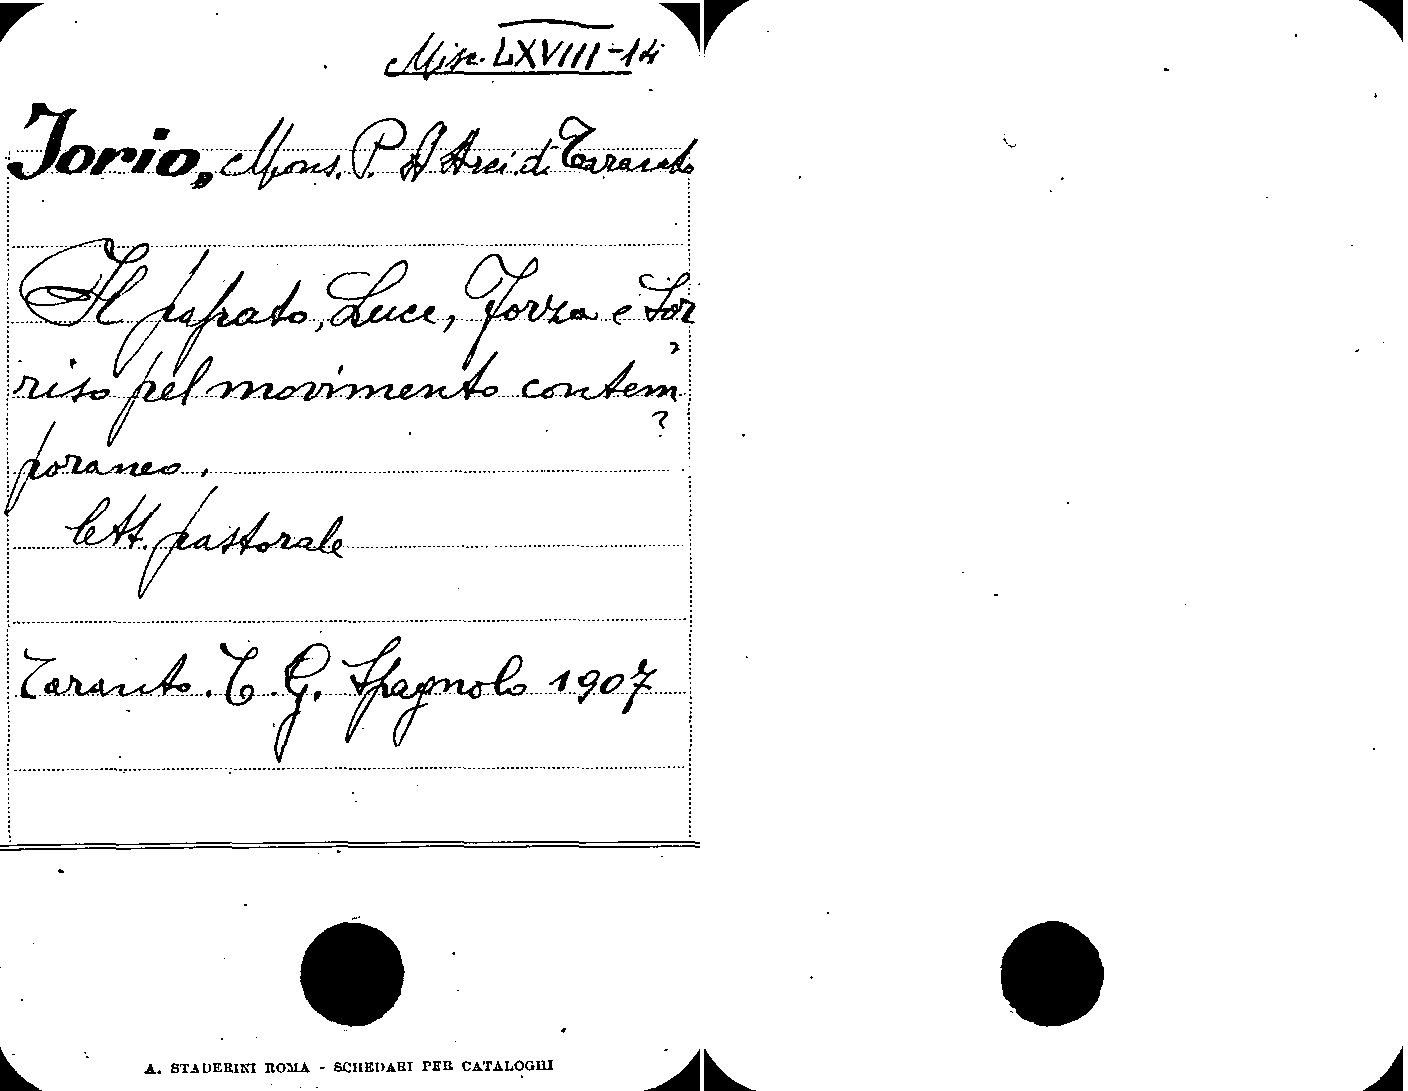 Misc. LXVIII-14
Jorio, Mons. P. A Arci. di Taranto
Il papato, Luce, Forza e Sor
riso pel movimento contem
poraneo.
lett. pastorale
Taranto. T. G. Spagnolo 1907
A. STADERINI ROMA - SCHEDARI PER CATALOGHI